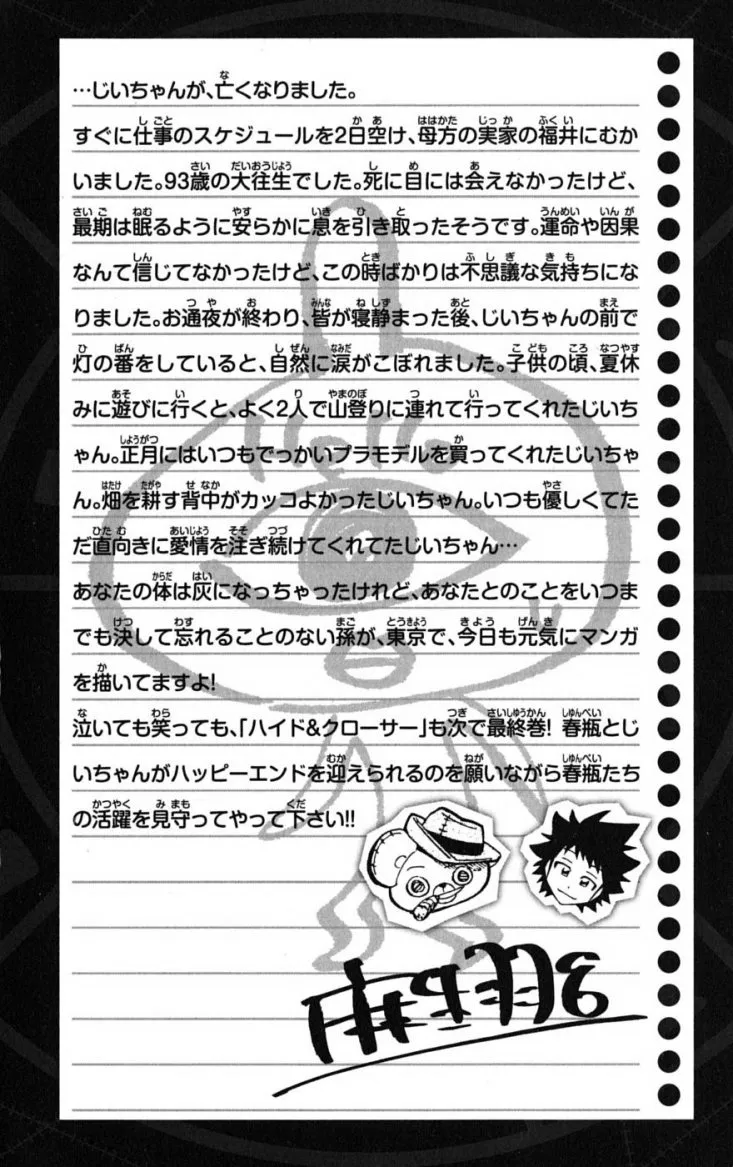 …じいちゃんが、亡くなりました。
すぐに仕事のスケジュールを2日空け、母方の実家の福井にむか
いました。93歳の大往生でした。死に目には会えなかったけど、
最期は眠るように安らかに息を引き取ったそうです。運命や因果
なんて信じてなかったけど、この時ばかりは不思議な気持ちにな
りました。お通夜が終わり、皆が寝静まった後、じいちゃんの前で
灯の番をしていると、自然に涙がこぼれました。子供の頃、夏休
みに遊びに行くと、よく2人で山登りに連れて行ってくれたじいち
ゃん。正月にはいつもでっかいプラモデルを買ってくれたじいちゃ
ん。畑を耕す背中がカッコよかったじいちゃん。いつも優しくてた
だ直向きに愛情を注ぎ続けてくれてたじいちゃん…
あなたの体は灰になっちゃったけれど、あなたとのことをいつま
でも決して忘れることのない孫が、東京で、今日も元気にマンガ
を描いてますよ!
泣いても笑っても、「ハイド&クローサー」も次で最終巻! 春瓶とじ
いちゃんがハッピーエンドを迎えられるのを願いながら春瓶たち
の活躍を見守ってやって下さい!!
Hello